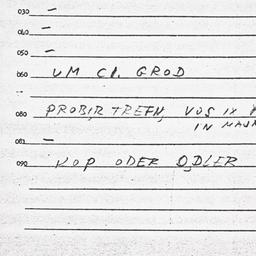 030 —
040 —
050 —
060 UM CI. GROD
080 PROBIR TREFN, VOS IX
IN
081 —
090 KOP ODER ODLER